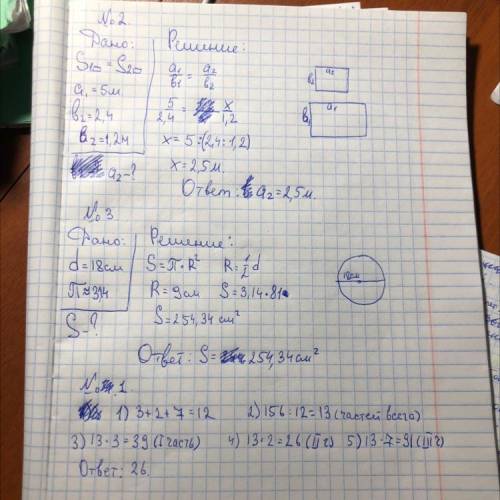 №2
Дано: Решение:
S₁▭ = S₂▭
a₁ = 5м
в₁ = 2,4
в₂ = 1,2м
a₂ - ?
a₁/в₁ = a₂/в₂
5/2,4 = x/1,2
x = 5 : (2,4 : 1,2)
x = 2,5м.
Ответ: a₂ = 2,5м.
a₂
в₂
a₁
в₁
№3
Дано: Решение:
d = 18см
π ≈ 3,14
S - ?
S = π · R² R = 1/2 d
R = 9см S = 3,14 · 81
S = 254,34 см²
18см
Ответ: S = 254,34 см²
№ 1
1) 3 + 2 + 7 = 12 2) 156 : 12 = 13 (частей всего)
3) 13 · 3 = 39 (I часть) 4) 13 · 2 = 26 (II ч) 5) 13 · 7 = 91 (III ч)
Ответ: 26.